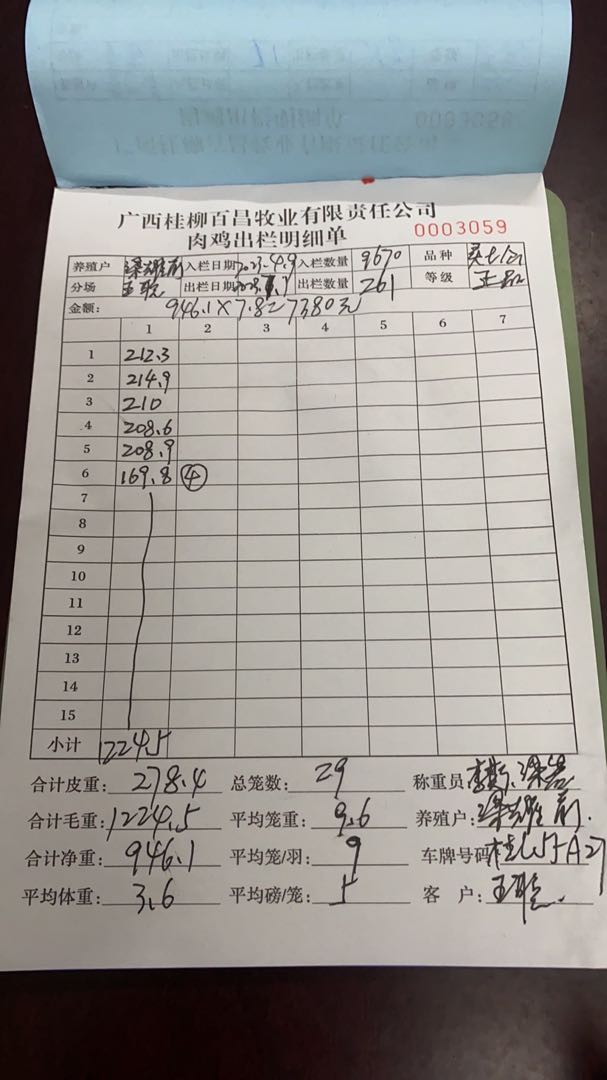 广西桂柳百昌牧业有限责任公司
肉鸡出栏明细单 0003059
养殖户 梁雄前 入栏日期 2023-4.9 入栏数量 9670 品种
分场 王聪 出栏日期 出栏数量 261 等级 正品
金额: 946.1×7.8=7380元
1 2 3 4 5 6 7
1 212.3
2 214.9
3 210
4 208.6
5 208.9
6 169.8 ④
7
8
9
10
11
12
13
14
15
小计 1224.5
合计皮重: 278.4 总笼数: 29 称重员
合计毛重: 1224.5 平均笼重: 9.6 养殖户: 梁雄前.
合计净重: 946.1 平均笼/羽: 9 车牌号码
平均体重: 3.6 平均磅/笼: 5 客 户: 王聪